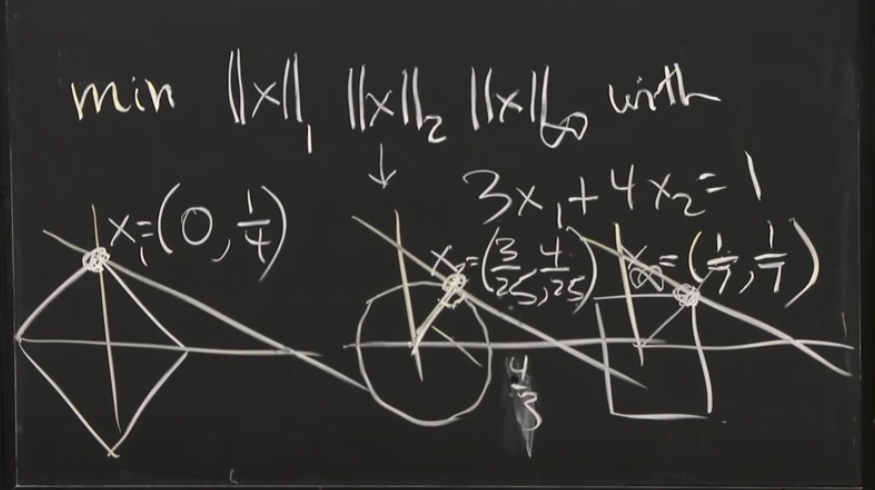 min ||x||₁ ||x||₂ ||x||∞ with
↓
3x₁ + 4x₂ = 1
x₁ = (0, 1/4)
x₂ = (3/25, 4/25)
x∞ = (1/7, 1/7)
4/3